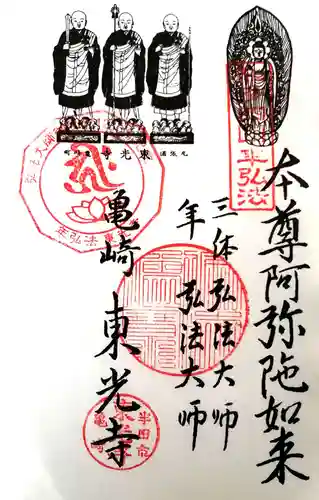 本尊阿弥陀如来
三体弘法大師
年弘法大師
亀崎 東光寺
年弘法
東光寺
年弘法
半田市
亀崎